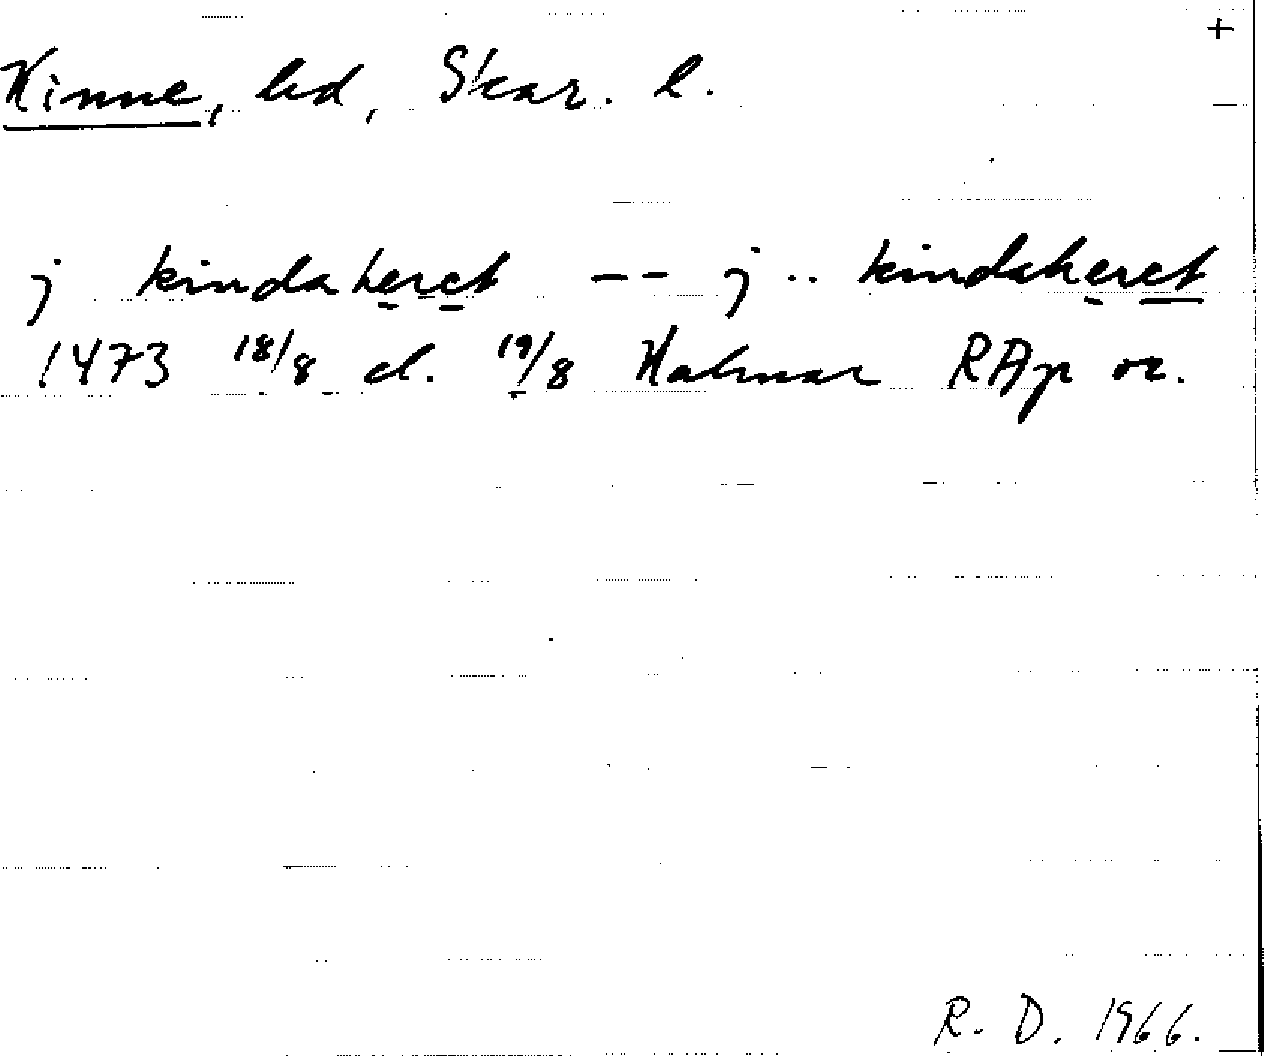 +
Kinne, hd, Skar. l.
j kindaheret -- j .. kindaheret
1473 18/8 d. 19/8 Kalmar RAp or.
R. D. 1966.